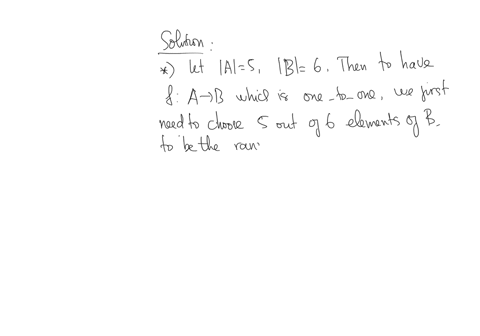 Solution:
*) Let |A|=5, |B|=6. Then to have
f: A→B which is one-to-one, we first
need to choose 5 out of 6 elements of B
to be the ran